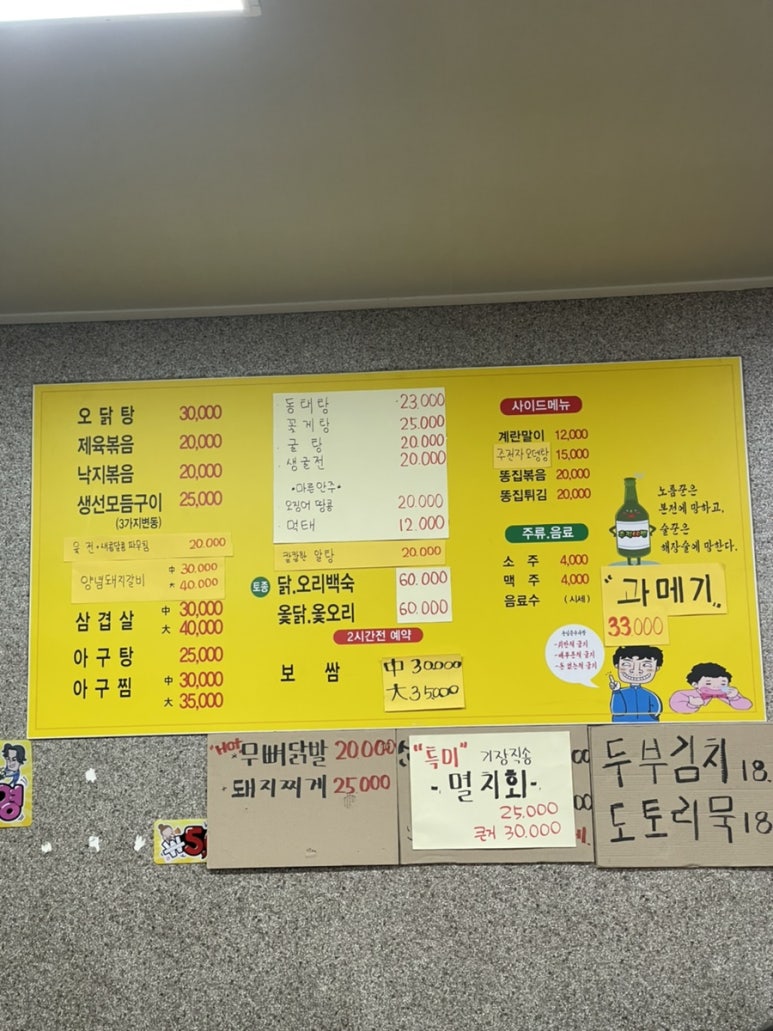 오닭탕 30,000
제육볶음 20,000
낙지볶음 20,000
생선모듬구이 25,000
(3가지변동)
20.000
양념돼지갈비 中 30.000
大 40.000
삼겹살 中 30,000
大 40,000
아구탕 25,000
아구찜 中 30,000
大 35,000
동태탕 23.000
꽃게탕 25.000
굴탕 20.000
생굴전 20.000
•마른안주•
오징어 땅콩 20.000
먹태 12.000
칼칼한 알탕 20.000
토종 닭.오리백숙 60.000
옻닭.옻오리 60.000
2시간전 예약
보쌈 中 30.000
大 35.000
사이드메뉴
계란말이 12,000
주전자오뎅탕 15,000
똥집볶음 20,000
똥집튀김 20,000
주류.음료
소주 4,000
맥주 4,000
음료수 (시세)
노름꾼은
본전에 망하고,
술꾼은
해장술에 망한다.
"과메기"
33.000
Hot 무뼈닭발 20.000
돼지찌게 25.000
"특미" 기장직송
-멸치회-
25.000
큰거 30.000
두부김치 18.
도토리묵 18
₩5,